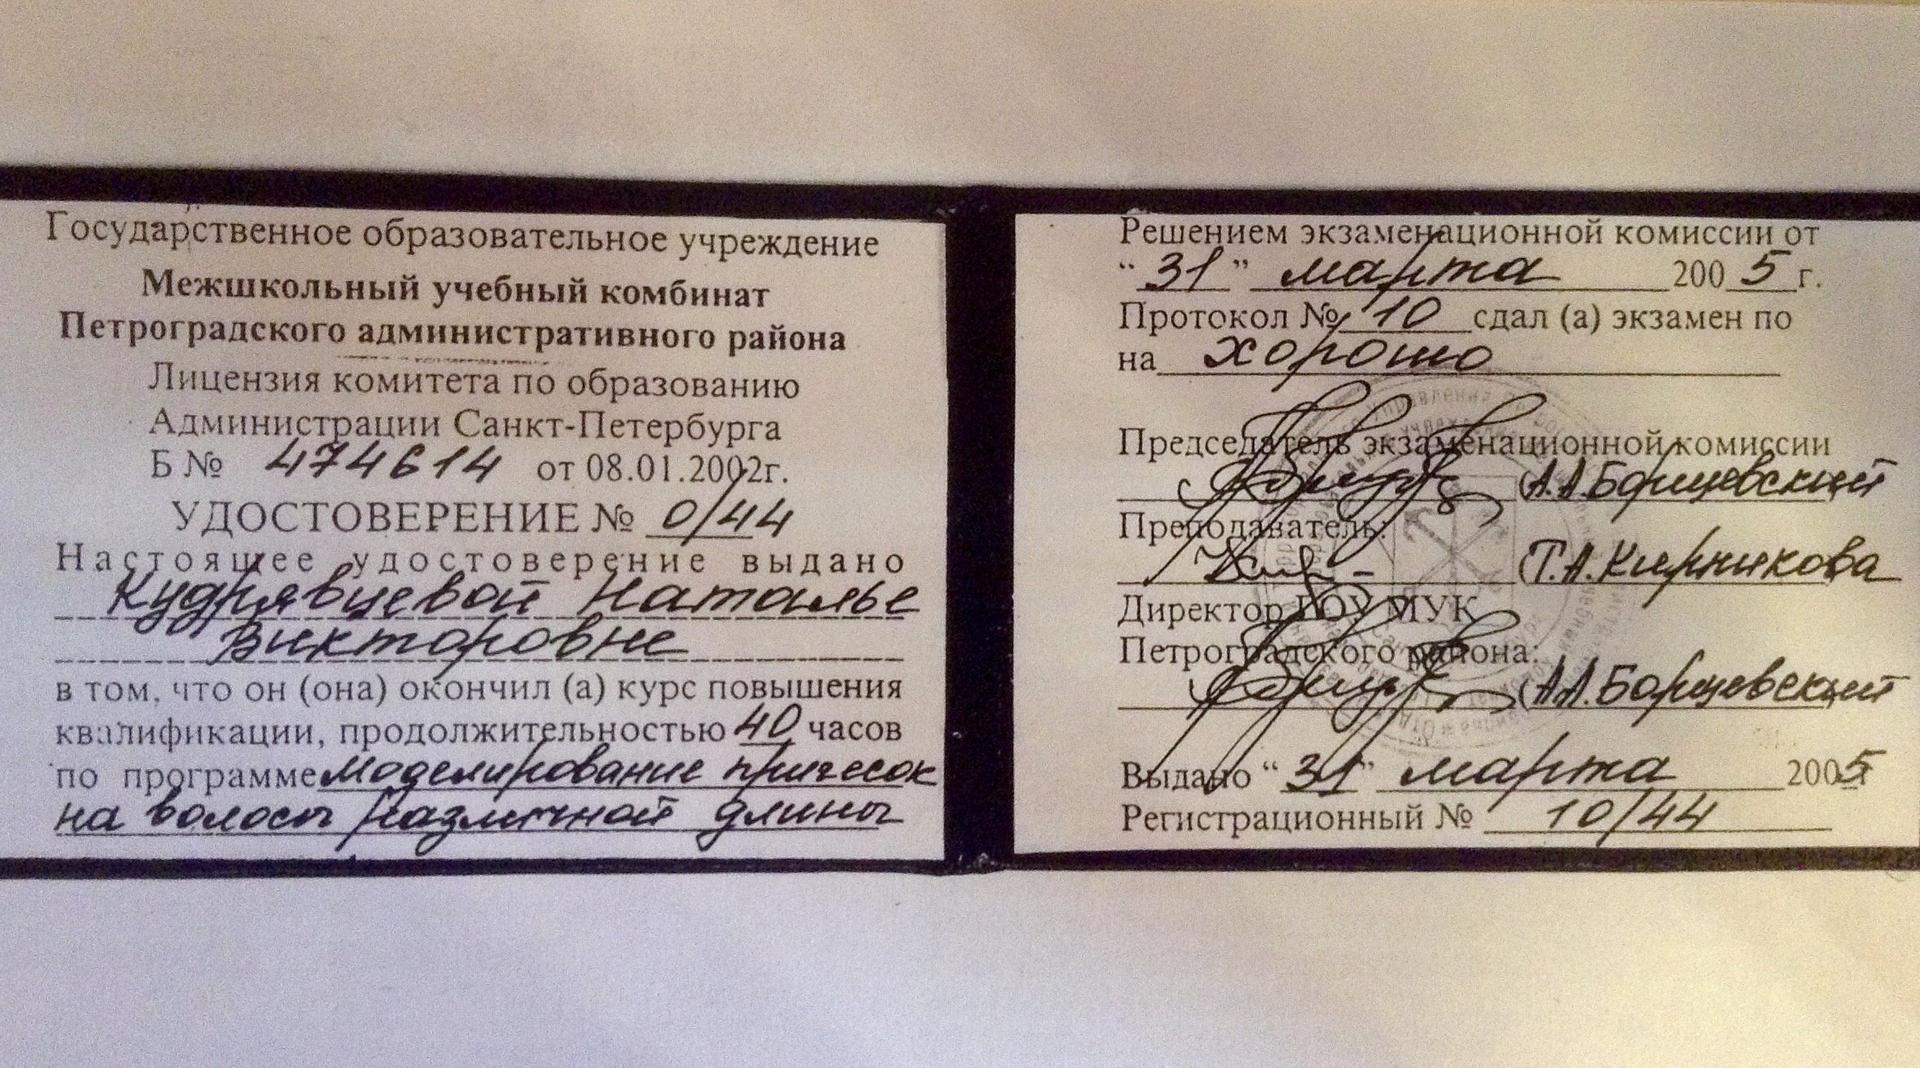 Государственное образовательное учреждение
Межшкольный учебный комбинат
Петроградского административного района
Лицензия комитета по образованию
Администрации Санкт-Петербурга
Б № 474614 от 08.01.2002г.
УДОСТОВЕРЕНИЕ № 0/44
Настоящее удостоверение выдано
Кудрявцевой Наталье
Викторовне
в том, что он (она) окончил (а) курс повышения
квалификации, продолжительностью 40 часов
по программе Моделирование причесок
на волосы различной длины
Решением экзаменационной комиссии от
“ 31 ” марта 200 5 г.
Протокол № 10 сдал (а) экзамен по
на хорошо
Председатель экзаменационной комиссии
(А.А.Борщевский
Преподаватель:
(Т.А.Кирникова
Директор ГОУ МУК
Петроградского района:
(А.А.Борщевский
Выдано “ 31 ” марта 2005
Регистрационный № 10/44